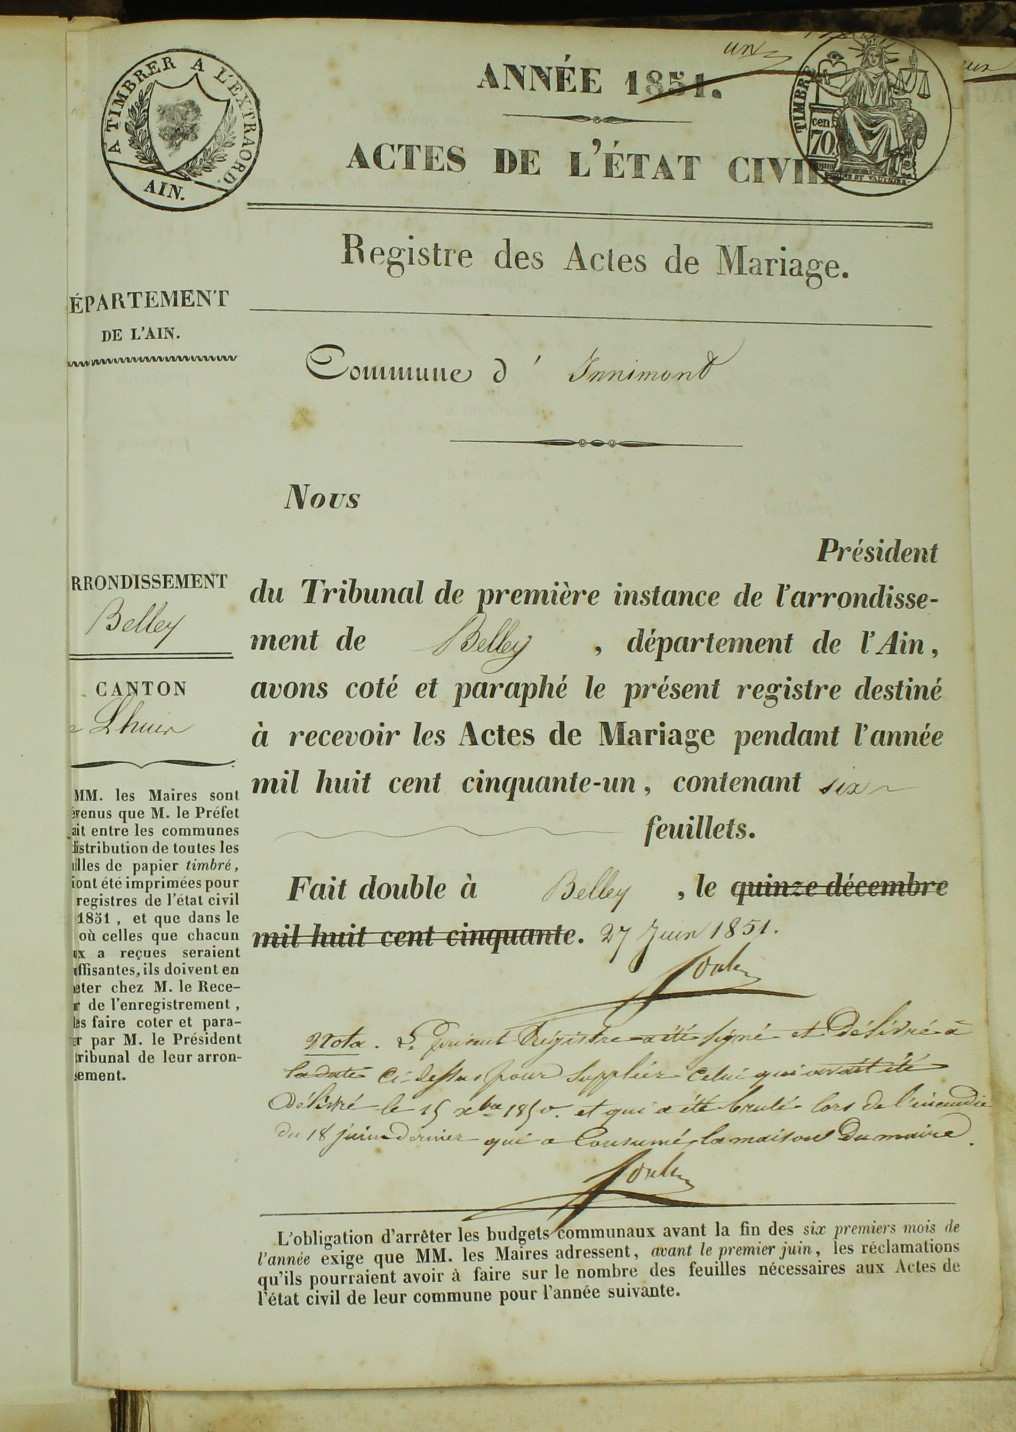 un
ANNÉE 1851.
A TIMBRER A L'EXTRAORD.
AIN.
TIMBRE
cen.
70
un
ACTES DE L'ÉTAT CIVIL
Registre des Actes de Mariage.
ÉPARTEMENT
DE L'AIN.
Commune d' Innimont
Nous
Président
du Tribunal de première instance de l'arrondisse-
ment de Belley , département de l'Ain,
avons coté et paraphé le présent registre destiné
à recevoir les Actes de Mariage pendant l'année
mil huit cent cinquante-un, contenant six
feuillets.
Fait double à Belley , le quinze décembre
mil huit cent cinquante. 27 Juin 1851.
RRONDISSEMENT
Belley
CANTON
e Lhuis
MM. les Maires sont
évenus que M. le Préfet
ait entre les communes
distribution de toutes les
illes de papier timbré,
iont été imprimées pour
registres de l'état civil
1851, et que dans le
où celles que chacun
ux a reçues seraient
uffisantes, ils doivent en
eter chez M. le Rece-
r de l'enregistrement,
les faire coter et para-
er par M. le Président
tribunal de leur arron-
sement.
Nota. Le présent Registre a été signé et délivré à
la date ci-dessus pour suppléer celui qui avait été
délivré le 15 xbre 1850. et qui a été brulé lors de l'incendie
du 18 juin dernier qui a consumé la maison du maire.
L'obligation d'arrêter les budgets communaux avant la fin des six premiers mois de
l'année exige que MM. les Maires adressent, avant le premier juin, les réclamations
qu'ils pourraient avoir à faire sur le nombre des feuilles nécessaires aux Actes de
l'état civil de leur commune pour l'année suivante.